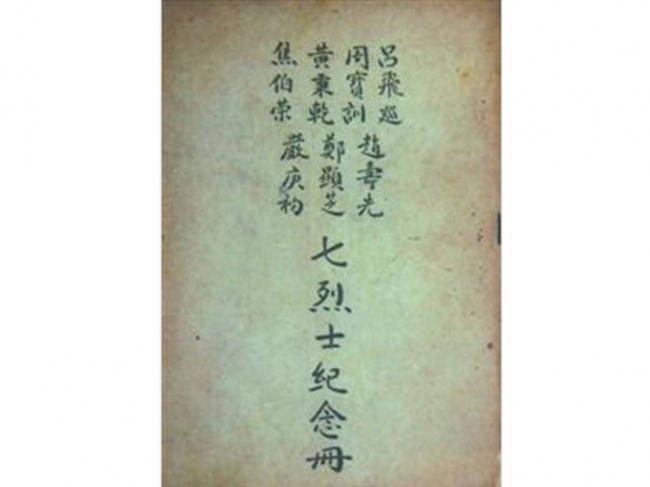 呂飛巡
周寶訓
黃秉乾
焦伯荣
趙壽先
鄭顯芝
嚴庚初
七烈士紀念冊